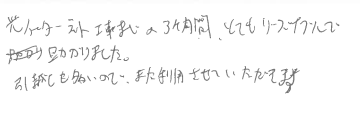 光ルーターミスト工事まじの3ヶ月間、とてもリーズナブルで
助かりました。
引越しも多いので、また利用させていただきます